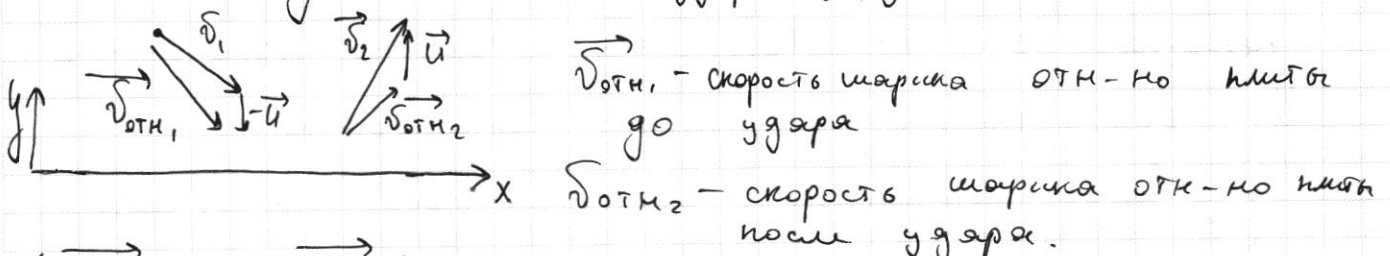 v₁ v₂ u
y vотн₁ -u vотн₂
x
vотн₁ - скорость шарика отн-но плиты
до удара
vотн₂ - скорость шарика отн-но плиты
после удара.